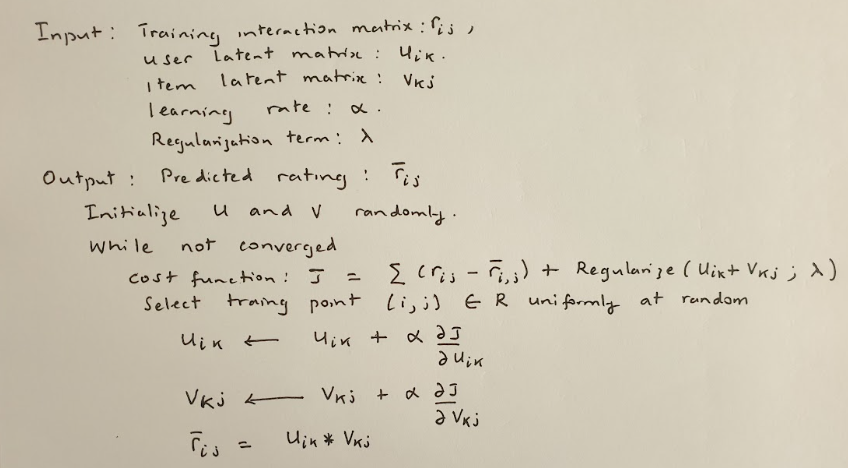 Input : Training interaction matrix : rij ,
user latent matrix : uik.
item latent matrix : vkj
learning rate : α.
Regularization term : λ
Output : Predicted rating : r̄ij
Initialize U and V randomly.
While not converged
cost function : J = Σ (rij - r̄i,j) + Regularize (Uik + Vkj ; λ)
Select traing point (i,j) ∈ R uniformly at random
uik ← uik + α ∂J/∂uik
Vkj ← Vkj + α ∂J/∂Vkj
r̄ij = uik * Vkj